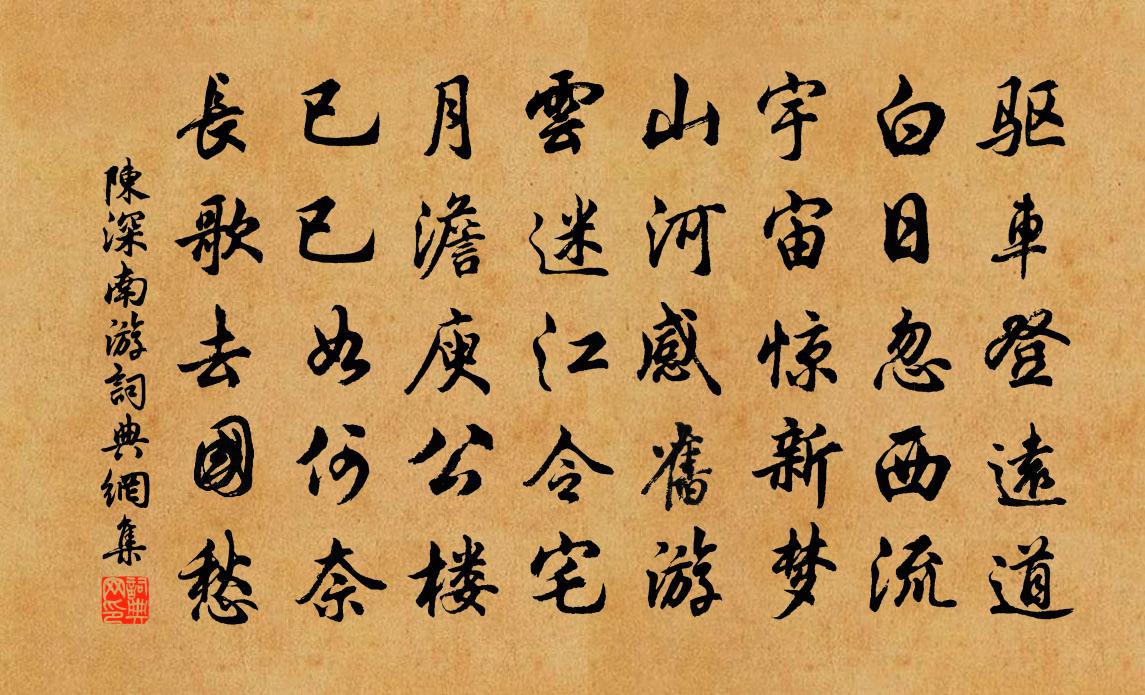 驱車登遠道
白日忽西流
宇宙惊新梦
山河感舊游
雲迷江令宅
月澹庾公楼
已已如何奈
長歌去國愁
陳深南游詞典網集
詞典网印